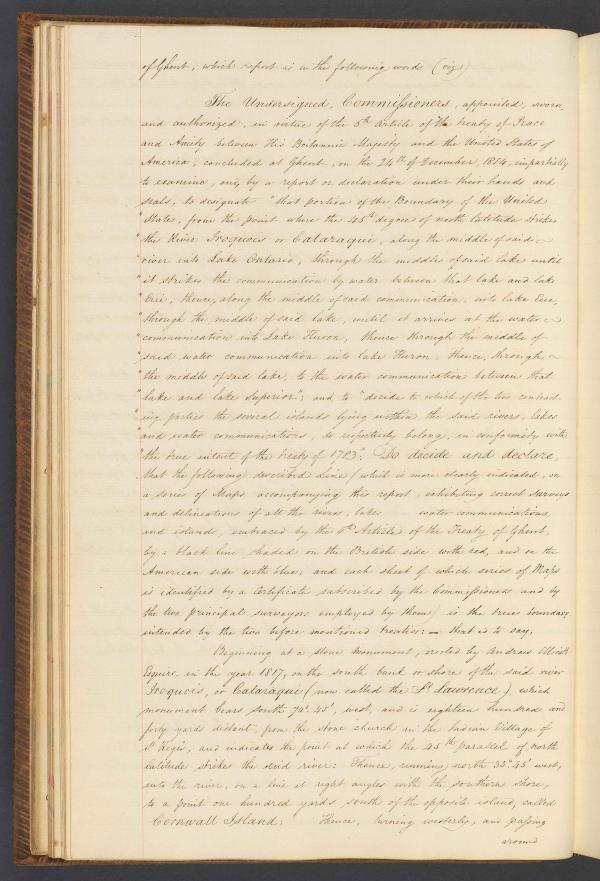 of Ghent, which report is in the following words (viz)
The Undersigned, Commissioners, appointed, sworn,
and authorized, in virtue of the 6th article of the treaty of Peace
and Amity between His Britannic Majesty and the United States of
America, concluded at Ghent, on the 24th of December, 1814, impartially
to examine, and, by a report or declaration under their hands and
seals, to designate "that portion of the Boundary of the United
"States, from the point where the 45th degree of north latitude strikes
"the River Iroquois or Cataraqui, along the middle of said
"river into Lake Ontario, through the middle of said lake until
"it strikes the communication by water between that lake and lake
"Erie, thence, along the middle of said communication, into lake Erie,
"through the middle of said lake, until it arrives at the water
"communication into Lake Huron, thence through the middle of
"said water communication into lake Huron, thence, through
"the middle of said lake, to the water communication between that
"lake and lake Superior"; and to "decide to which of the two contract-
"ing parties the several islands lying within the said rivers, lakes
"and water communications, do respectively belong, in conformity with
"the true intent of the treaty of 1783": Do decide and declare,
that the following described line (which is more clearly indicated, on
a series of Maps accompanying this report, exhibiting correct surveys
and delineations of all the rivers, lakes water communications,
and islands, embraced by the 6th Article of the Treaty of Ghent,
by a black line, shaded on the British side with red, and on the
American side with blue; and each sheet of which series of Maps
is identified by a Certificate subscribed by the Commissioners and by
the two principal surveyors employed by them) is the true boundary
intended by the two before mentioned treaties: — that is to say,
Beginning at a stone monument, erected by Andrew Ellicott
Esquire, in the year 1817, on the south bank or shore of the said river
Iroquois, or Cataraqui (now called the St Lawrence), which
monument bears south 74° 45', west, and is eighteen hundred and
forty yards distant, from the stone church in the Indian Village of
St Regis, and indicates the point at which the 45th parallel of north
latitude strikes the said river: Thence, running north 35° 45' west,
into the river, on a line at right angles with the southern shore,
to a point one hundred yards south of the opposite island, called
Cornwall Island: Thence, turning westerly, and passing
around